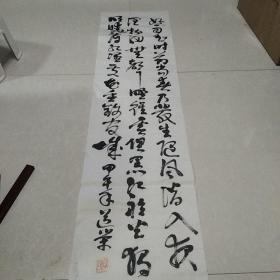 好雨知时节当春乃发生随风潜入夜
润物细无声野径云俱黑江船火独
明晓看红湿处花重锦官城 甲午年